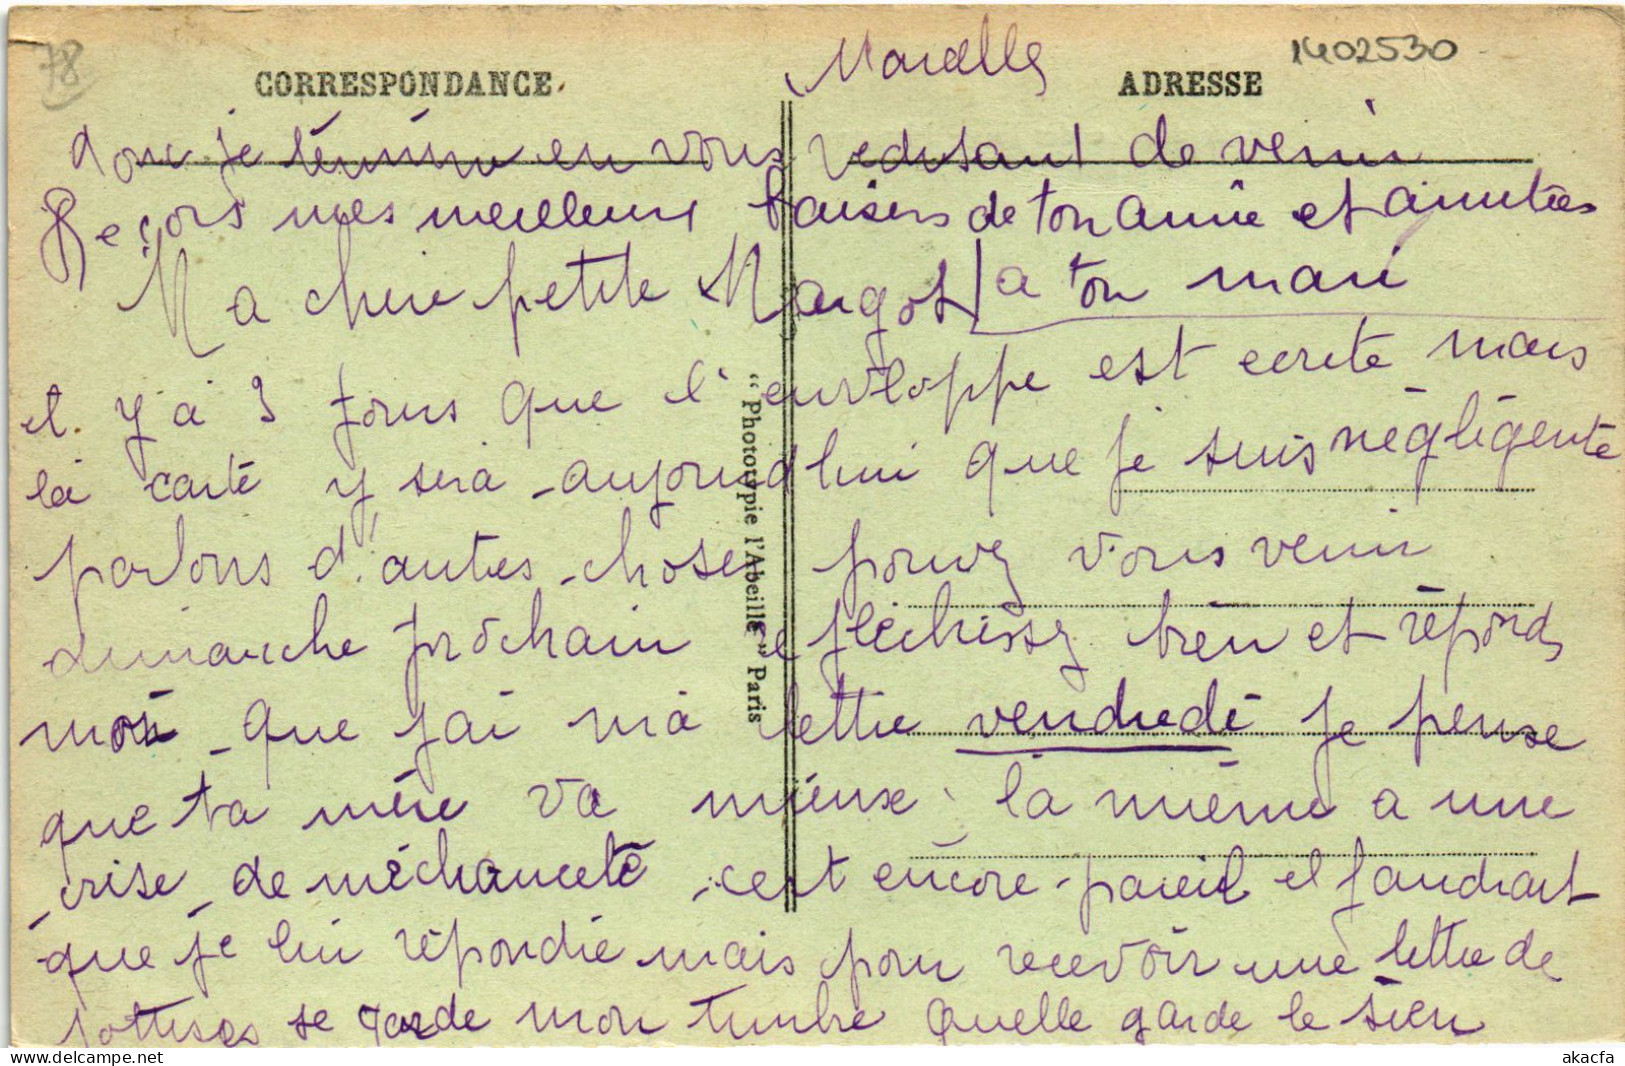 78
1402530
Marcelle
CORRESPONDANCE.
ADRESSE
donc je términe en vous redisant de venir
Reçois mes meilleurs baisers de ton amie et amitiés
Ma chere petite Margot a ton mari
il y a 3 jours que l'enveloppe est ecrite mais
la carte y sera aujourd'hui que je suis négligente
parlons d'autres choses pouvez vous venir
dimanche prochain réflechissez bien et réponds
moi que j'ai ma lettre vendredi je pense
que ta mère va mieux. la mienne a une
crise de méchanceté c'est encore pareil il faudrait
que je lui réponde mais pour recevoir une lettre de
sottises je garde mon timbre quelle garde le sien
"Phototypie l'Abeille" Paris
akacfa